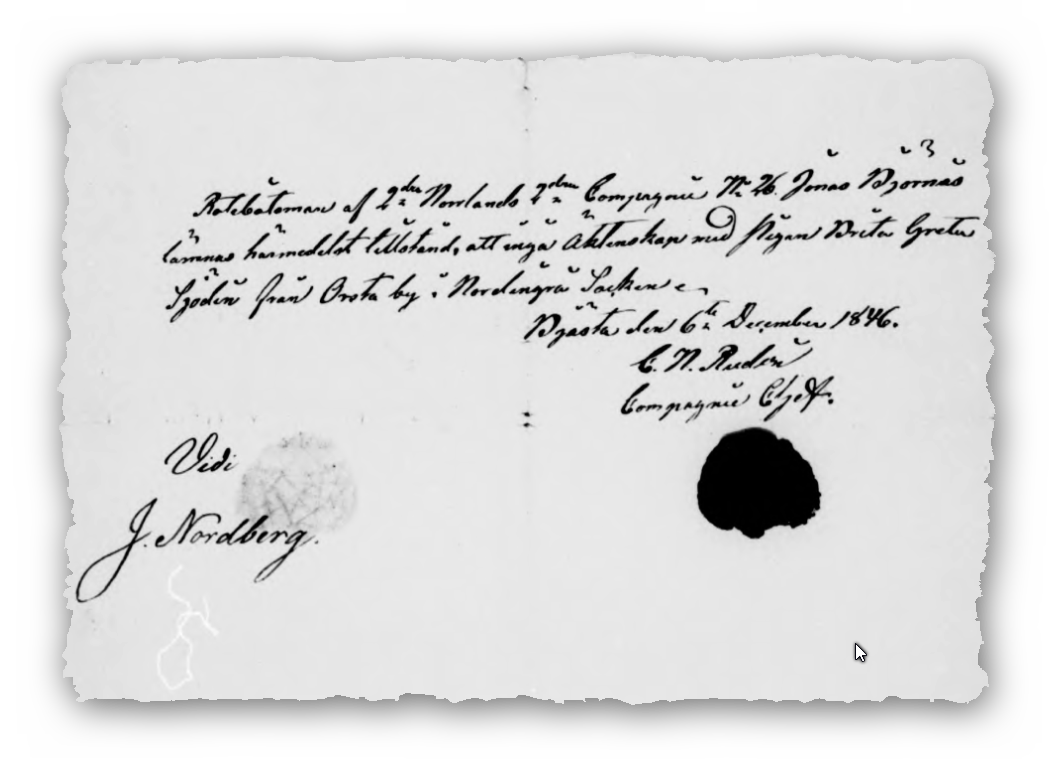 Rotebåtsman af 2dra Norrlands 2dra Compagnie No 26. Jonas Björnäs
lämnas härmedelst tillstånd, att ingå Äktenskap med pigan Brita Greta
Sjödin från Orsta by i Nordingrå Socken
Bjästa den 6te December 1846.
C. N. Rudin
Compagnie Chef.
Vidi
J. Nordberg.